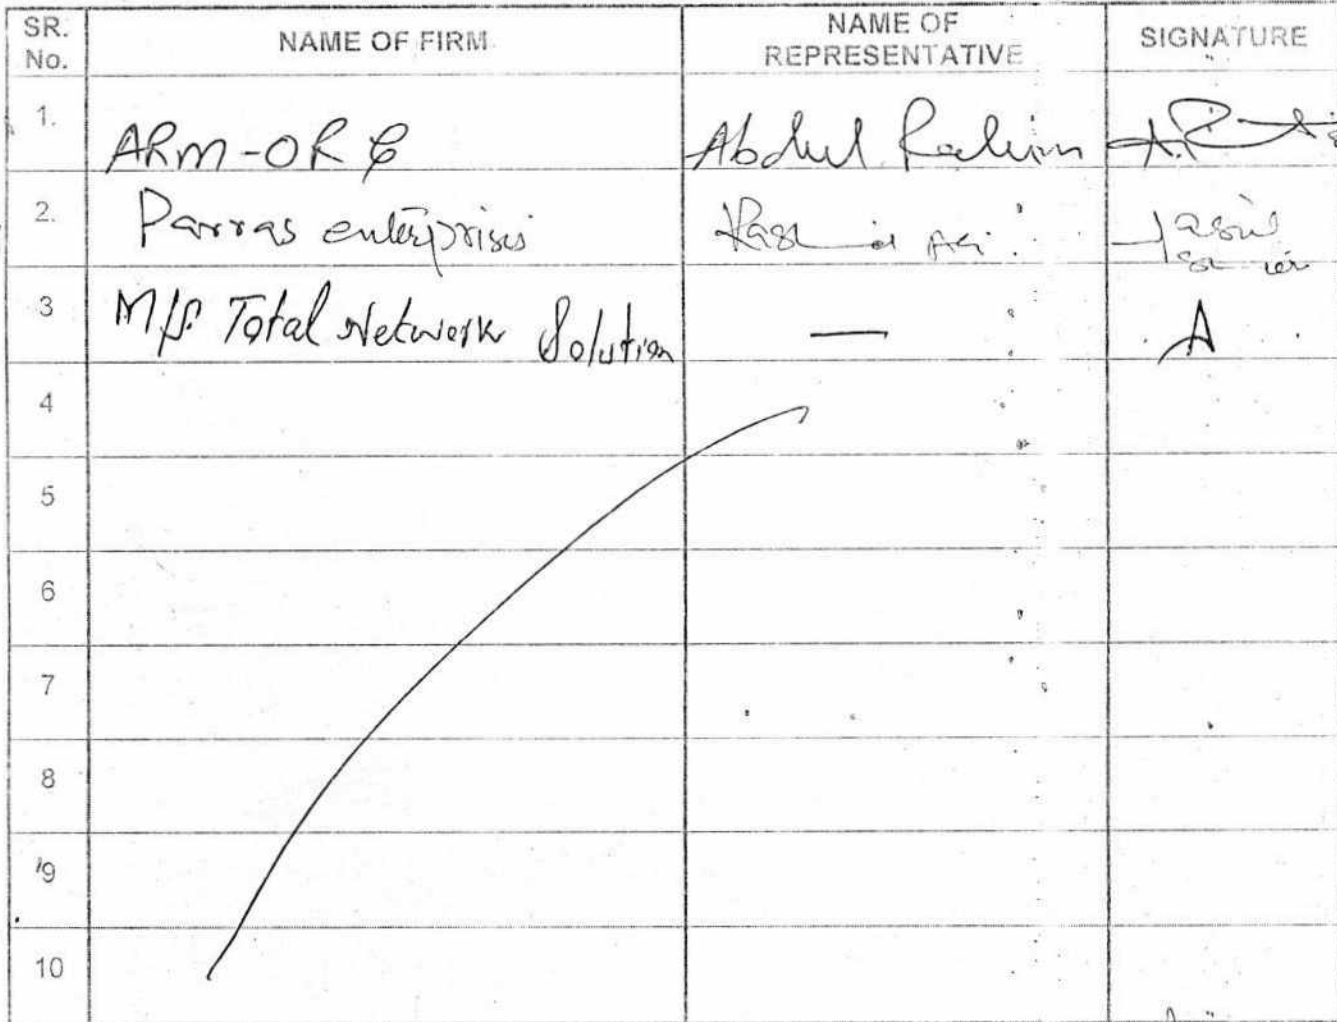 SR. No.
NAME OF FIRM
NAME OF REPRESENTATIVE
SIGNATURE
1. ARM-ORG Abdul Rahim
2. Parras enterprisis
3 M/s. Total Network Solution — A
4
5
6
7
8
9
10